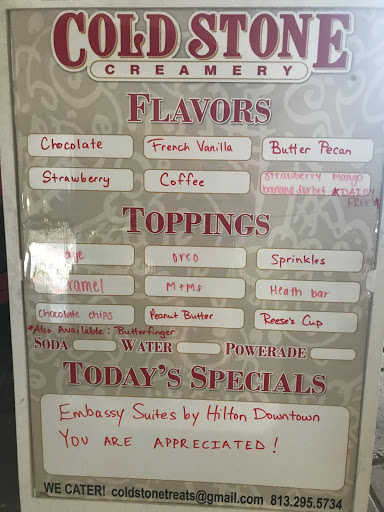 COLD STONE
CREAMERY
FLAVORS
Chocolate French Vanilla Butter Pecan
Strawberry Coffee Strawberry Mango
banana sorbet *DAIRY
FREE*
TOPPINGS
OREO Sprinkles
M+Ms Heath bar
Chocolate chips Peanut Butter Reese's Cup
*Also Available: Butterfinger
SODA WATER POWERADE
TODAY'S SPECIALS
Embassy Suites by Hilton Downtown
YOU ARE APPRECIATED!
WE CATER! coldstonetreats@gmail.com 813.295.5734